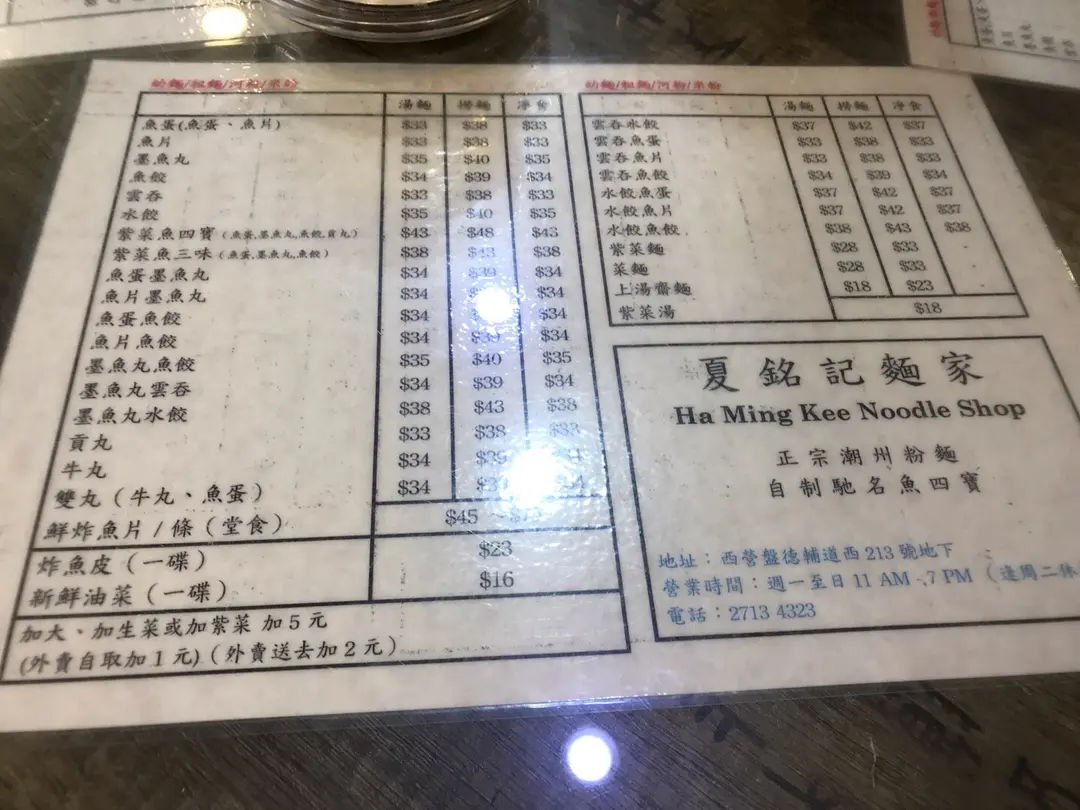 幼麵/粗麵/河粉/米粉
湯麵 撈麵 淨食
魚蛋(魚蛋、魚片) $33 $38 $33
魚片 $33 $38 $33
墨魚丸 $35 $40 $35
魚餃 $34 $39 $34
雲吞 $33 $38 $33
水餃 $35 $40 $35
紫菜魚四寶(魚蛋,墨魚丸,魚餃,貢丸) $43 $48 $43
紫菜魚三味(魚蛋,墨魚丸,魚餃) $38 $43 $38
魚蛋墨魚丸 $34 $39 $34
魚片墨魚丸 $34 $34
魚蛋魚餃 $34 $34
魚片魚餃 $34 $39 $34
墨魚丸魚餃 $35 $40 $35
墨魚丸雲吞 $34 $39 $34
墨魚丸水餃 $38 $43 $38
貢丸 $33 $38 $33
牛丸 $34
雙丸(牛丸、魚蛋) $34
鮮炸魚片/條(堂食) $45
炸魚皮(一碟) $23
新鮮油菜(一碟) $16
加大、加生菜或加紫菜 加5元
(外賣自取加1元)(外賣送去加2元)
幼麵/粗麵/河粉/米粉
湯麵 撈麵 淨食
雲吞水餃 $37 $42 $37
雲吞魚蛋 $33 $38 $33
雲吞魚片 $33 $38 $33
雲吞魚餃 $34 $39 $34
水餃魚蛋 $37 $42 $37
水餃魚片 $37 $42 $37
水餃魚餃 $38 $43 $38
紫菜麵 $28 $33
菜麵 $28 $33
上湯齋麵 $18 $23
紫菜湯 $18
夏銘記麵家
Ha Ming Kee Noodle Shop
正宗潮州粉麵
自制馳名魚四寶
地址：西營盤德輔道西 213 號地下
營業時間：週一至日 11 AM -7 PM (逢周二休
電話：2713 4323